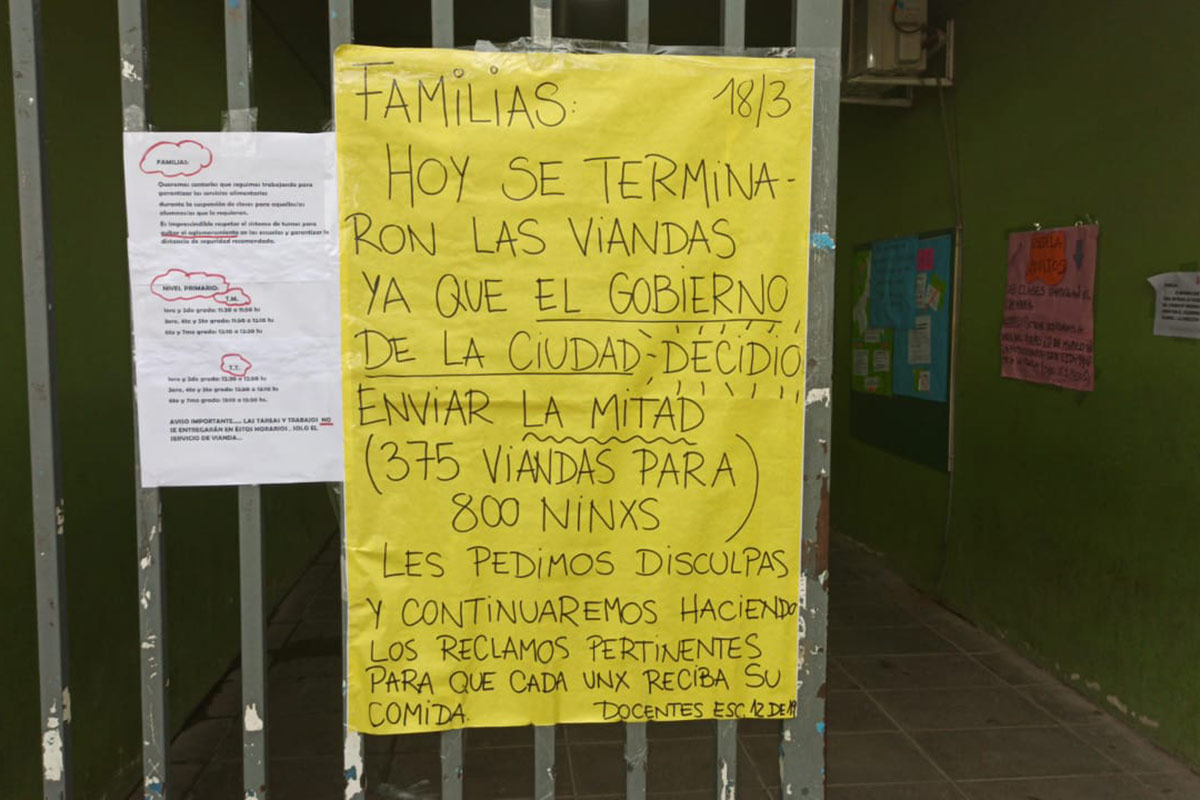 FAMILIAS: 18/3
HOY SE TERMINA-
RON LAS VIANDAS
YA QUE EL GOBIERNO
DE LA CIUDAD DECIDIÓ
ENVIAR LA MITAD
(375 VIANDAS PARA
800 NINXS)
LES PEDIMOS DISCULPAS
Y CONTINUAREMOS HACIENDO
LOS RECLAMOS PERTINENTES
PARA QUE CADA UNX RECIBA SU
COMIDA. DOCENTES ESC. 12 DE 19
FAMILIAS:
Queremos contarles que seguimos trabajando para
garantizar los servicios alimentarios
durante la suspensión de clases para aquellos/as
alumnos/as que lo requieran.
Es imprescindible respetar el sistema de turnos para
evitar el aglomeramiento en las escuelas y garantizar la
distancia de seguridad recomendada.
NIVEL PRIMARIO:
T.M.
1ero y 2do grado: 11:30 a 11:50 hs
3ero, 4to y 5to grado: 11:50 a 12:10 hs
6to y 7mo grado: 12:10 a 12:30 hs
T.T.
1ero y 2do grado: 12:30 a 12:50 hs
3ero, 4to y 5to grado: 12:50 a 13:10 hs
6to y 7mo grado: 13:10 a 13:30 hs.
AVISO IMPORTANTE..... LAS TAREAS Y TRABAJOS NO
SE ENTREGARÁN EN ESTOS HORARIOS, SOLO EL
SERVICIO DE VIANDA...